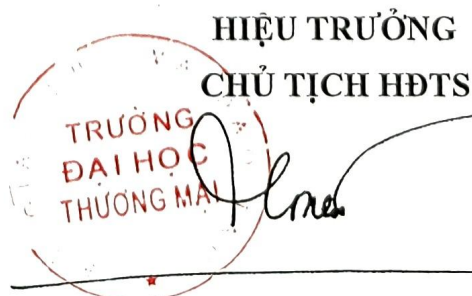 HIỆU TRƯỞNG
CHỦ TỊCH HĐTS
TRƯỜNG
ĐẠI HỌC
THƯƠNG MẠI